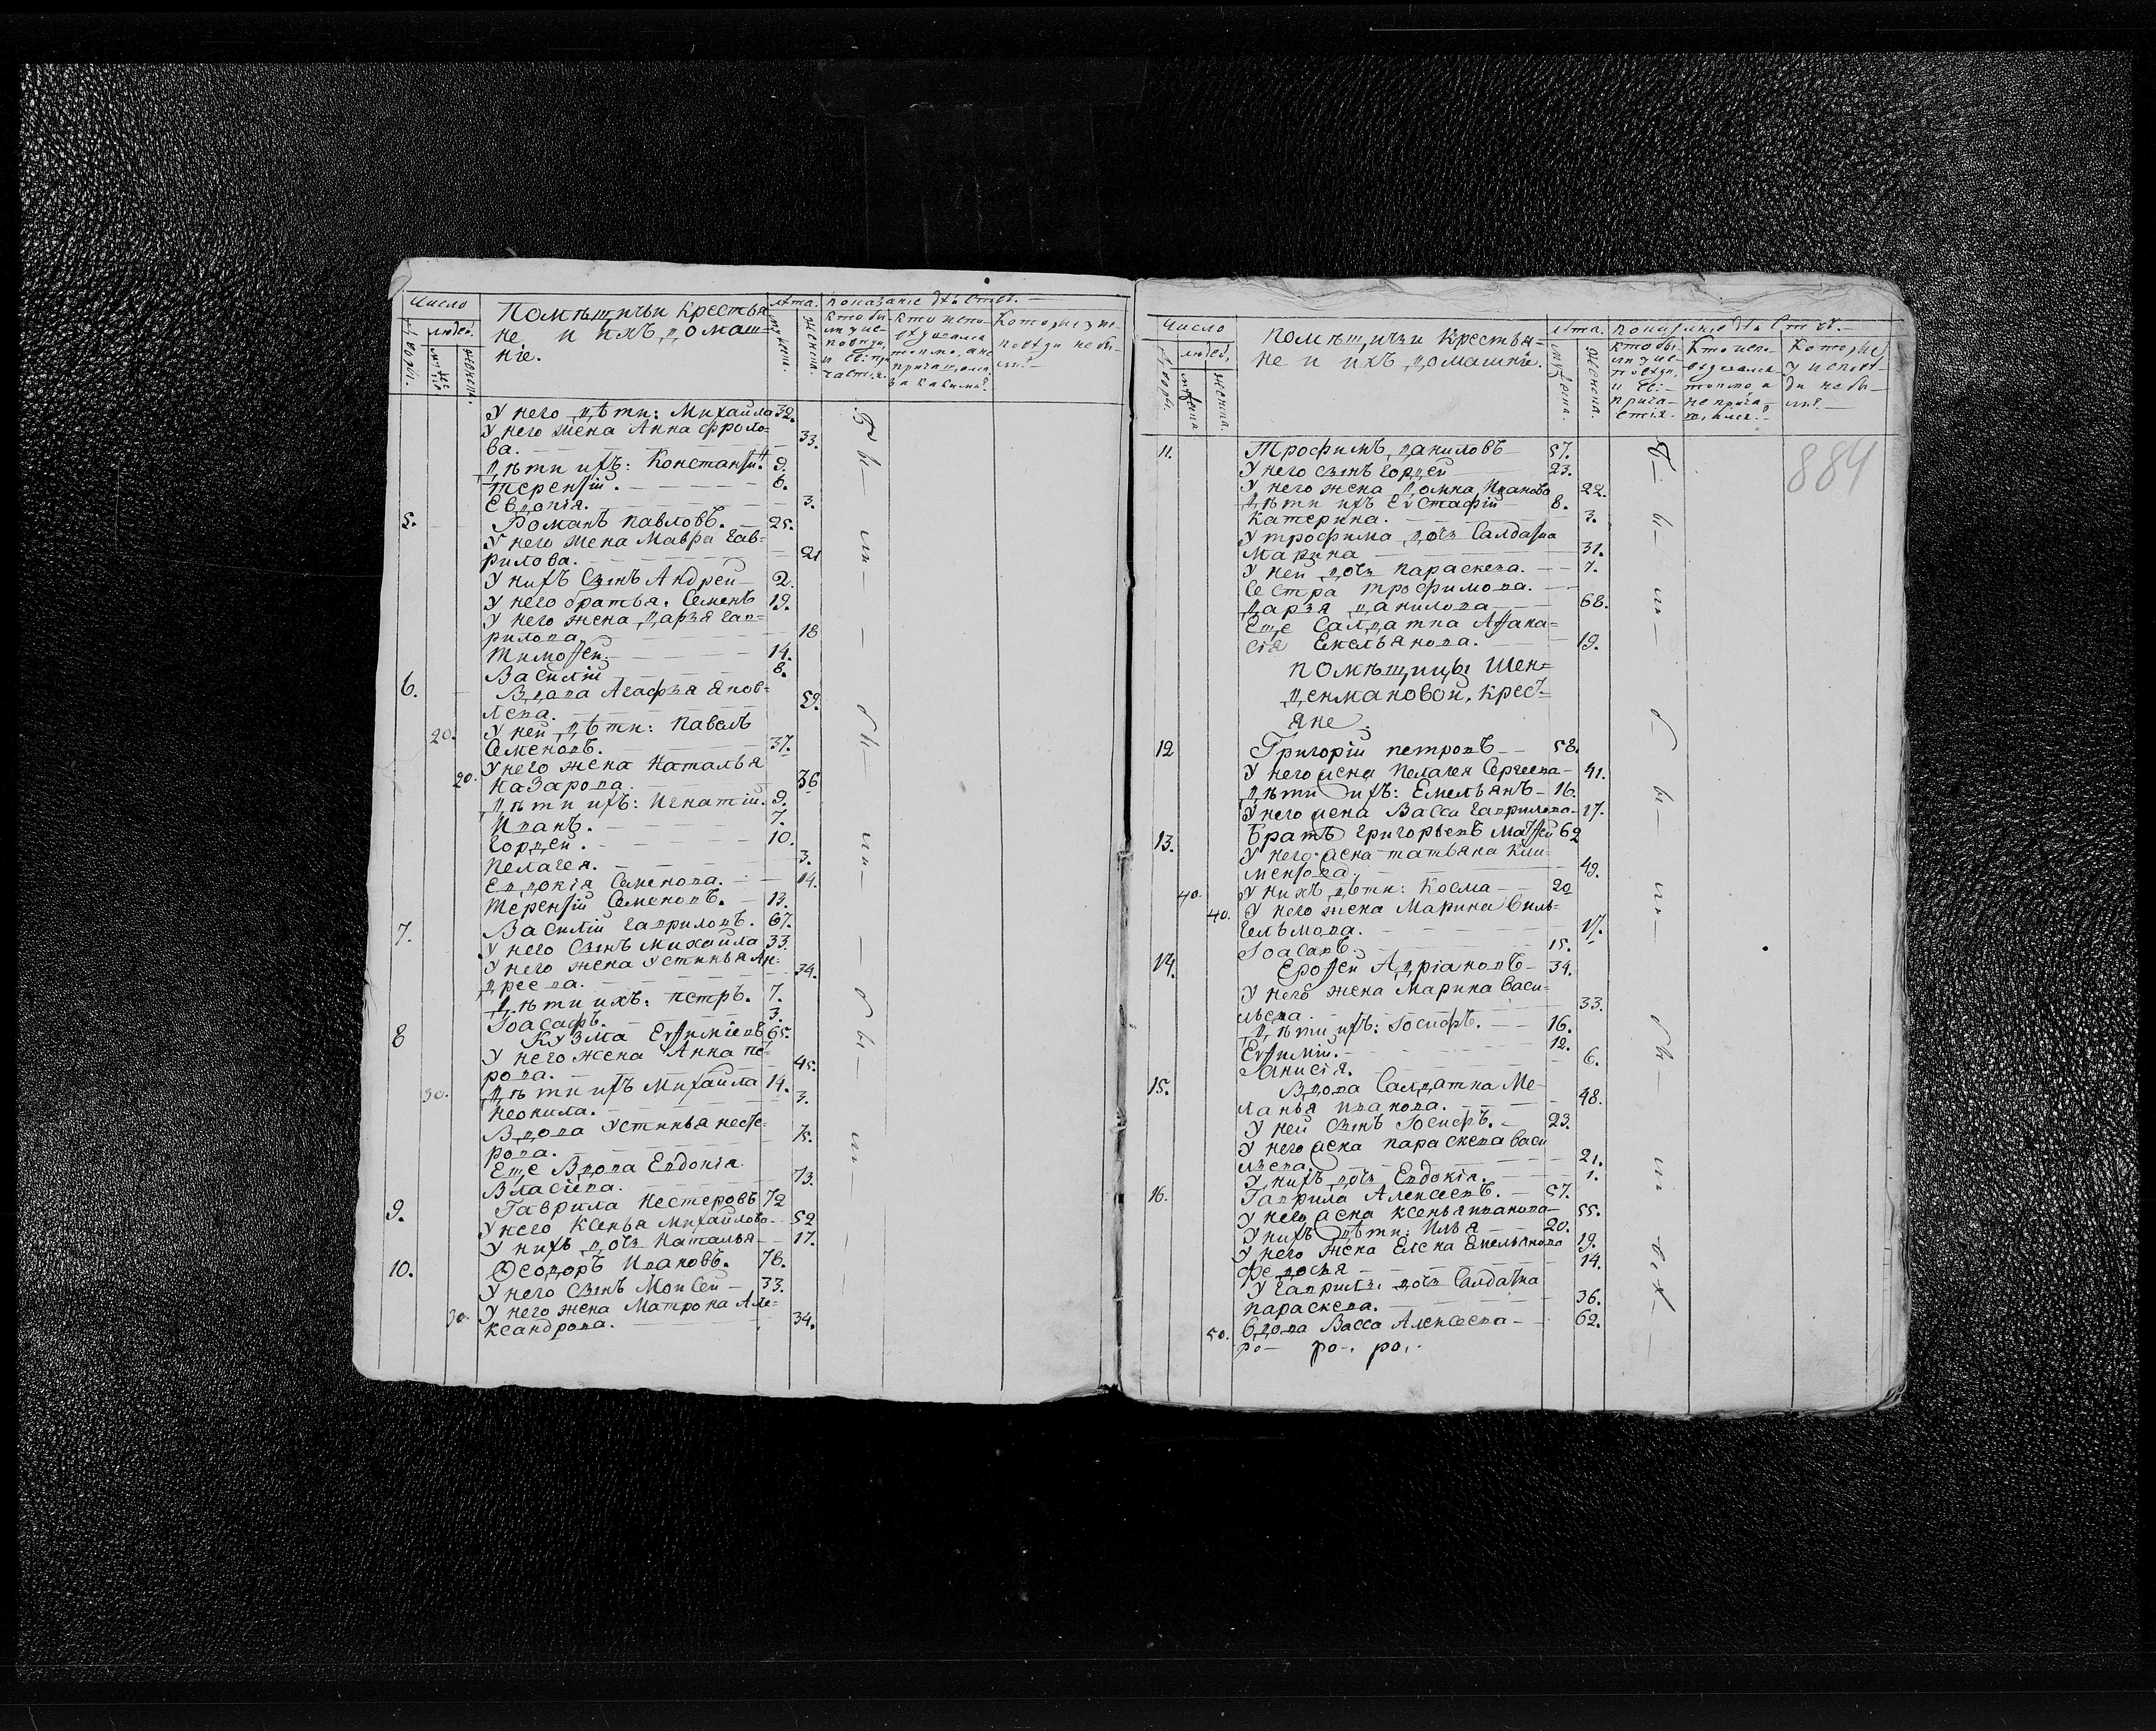 Число
людей.
Дворы.
женска.
Помѣщичьи крестья
не и ихъ домаш=
ніе.
лѣта.
мужска.
женска.
показаніе дѣйств.
кто бы-
ли у ис-
повѣди,
и св: при
частія.
кто испо-
вѣдался
токмо, а не
причащался
за какими?
которые у ис-
повѣди не бы-
ли?
У него дѣти: Михайла 32.
У него жена Анна Фроло=
ва. 33.
Дѣти ихъ: Константин. 9.
Терентій. 6.
Евдокія. 3.
5. Романъ Павловъ. 25.
У него жена Мавра Гав=
рилова. 21
У нихъ сынъ Андрей 2.
У него братья: Семенъ 19.
У него жена Дарья Гав=
рилова 18
Тимофей. 14.
Василій 8.
6. Вдова Агафья Яков=
лева. 59.
20. У ней дѣти: Павелъ
Семеновъ. 37.
20. У него жена Наталья
Назарова. 36
Дѣти ихъ: Игнатій. 9.
Иванъ. 7.
Гордей. 10.
Пелагея. 3.
Евдокія Семенова. 14.
Терентій Семеновъ. 13.
7. Василій Гавриловъ. 67.
У него сынъ Михайла 33.
У него жена Устинья Ан=
дреева. 34.
Дѣти ихъ: Петръ. 7.
Іоасафъ. 3.
8 Кузма Евфиміевъ 65.
У него жена Анна Пе=
рова. 45.
30. Дѣти ихъ Михайла 14.
Неонила. 3.
Вдова Устинья Несте=
рова. 75.
Еще Вдова Евдокія
Власіева. 73.
9. Гаврила Нестеровъ 72
У него Ксенья Михайлова 52
У нихъ дочь Наталья 17.
10. Ѳеодоръ Ивановъ. 78.
У него сынъ Моисей 33.
30. У него жена Матрона Але=
ксандрова. 34.
Бы- ли - бы- ли - бы- ли
Число
людей,
Дворы.
мужска
женска.
помѣщичьи крестья=
не и ихъ домашніе.
лѣта.
мужска.
женска.
показаніе дѣйств.
кто бы-
ли у ис-
повѣди,
и св:
прича-
стія.
кто испо-
вѣдался
токмо, а
не прича-
щался?
которые
у исповѣ-
ди не бы-
ли?
884
11. Трофимъ Даниловъ 57.
У него сынъ Гордей 23.
У него жена Домна Иванова 22.
Дѣти ихъ Евстафій 8.
Катерина. 3.
У Трофима дочь Салдатка
Марина 31.
У ней дочь Параскева. 7.
Сестра Трофимова.
Дарья Данилова 68.
Еще Салдатка Афана=
сія Емельянова. 19.
помѣщицы Шен=
денмановой, крест=
яне.
12 Григорій Петровъ 58.
У него жена Пелагея Сергеева 41.
Дѣти ихъ: Емельянъ 16.
У него жена Васса Гаврилова 17.
13. Братъ Григорьевъ Матфей 62
У него жена Татьяна Кли=
ментова. 49.
40. У нихъ дѣти: Косма 20
40. У него жена Марина Виль=
гельмова. 17.
Іоасафъ. 15.
14. Ерофей Адріановъ 34.
У него жена Марина Васи=
льева. 33.
Дѣти ихъ: Іосифъ. 16.
Евфимій. 12.
Анисія. 6.
15. Вдова Салдатка Ме-
ланья Иванова. 48.
У ней сынъ Іосифъ. 23.
У него жена Параскева Васи
льева. 21.
У нихъ дочь Евдокія. 1.
16. Гаврила Алексеевъ. 57.
У него жена Ксенья Иванова 55.
У нихъ дѣти: Илья 20.
У него жена Елена Емельянова 19.
Федосья 14.
У Гаврилы дочь Салдатка
Параскева. 36.
50. Вдова Васса Алексеева 62.
ро- ро-. ро.
Бы- ли- бы- ли- бы- ли всѣ